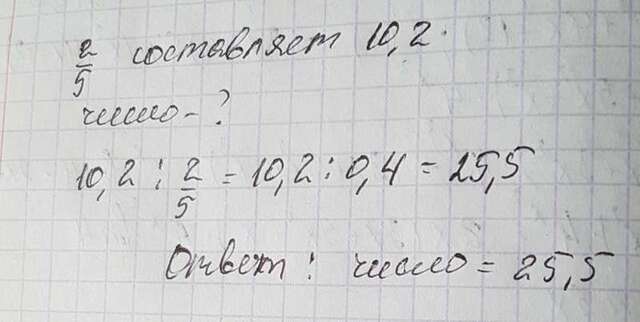 2/5 составляет 10,2.
число - ?
10,2 : 2/5 = 10,2 : 0,4 = 25,5
Ответ : число = 25,5